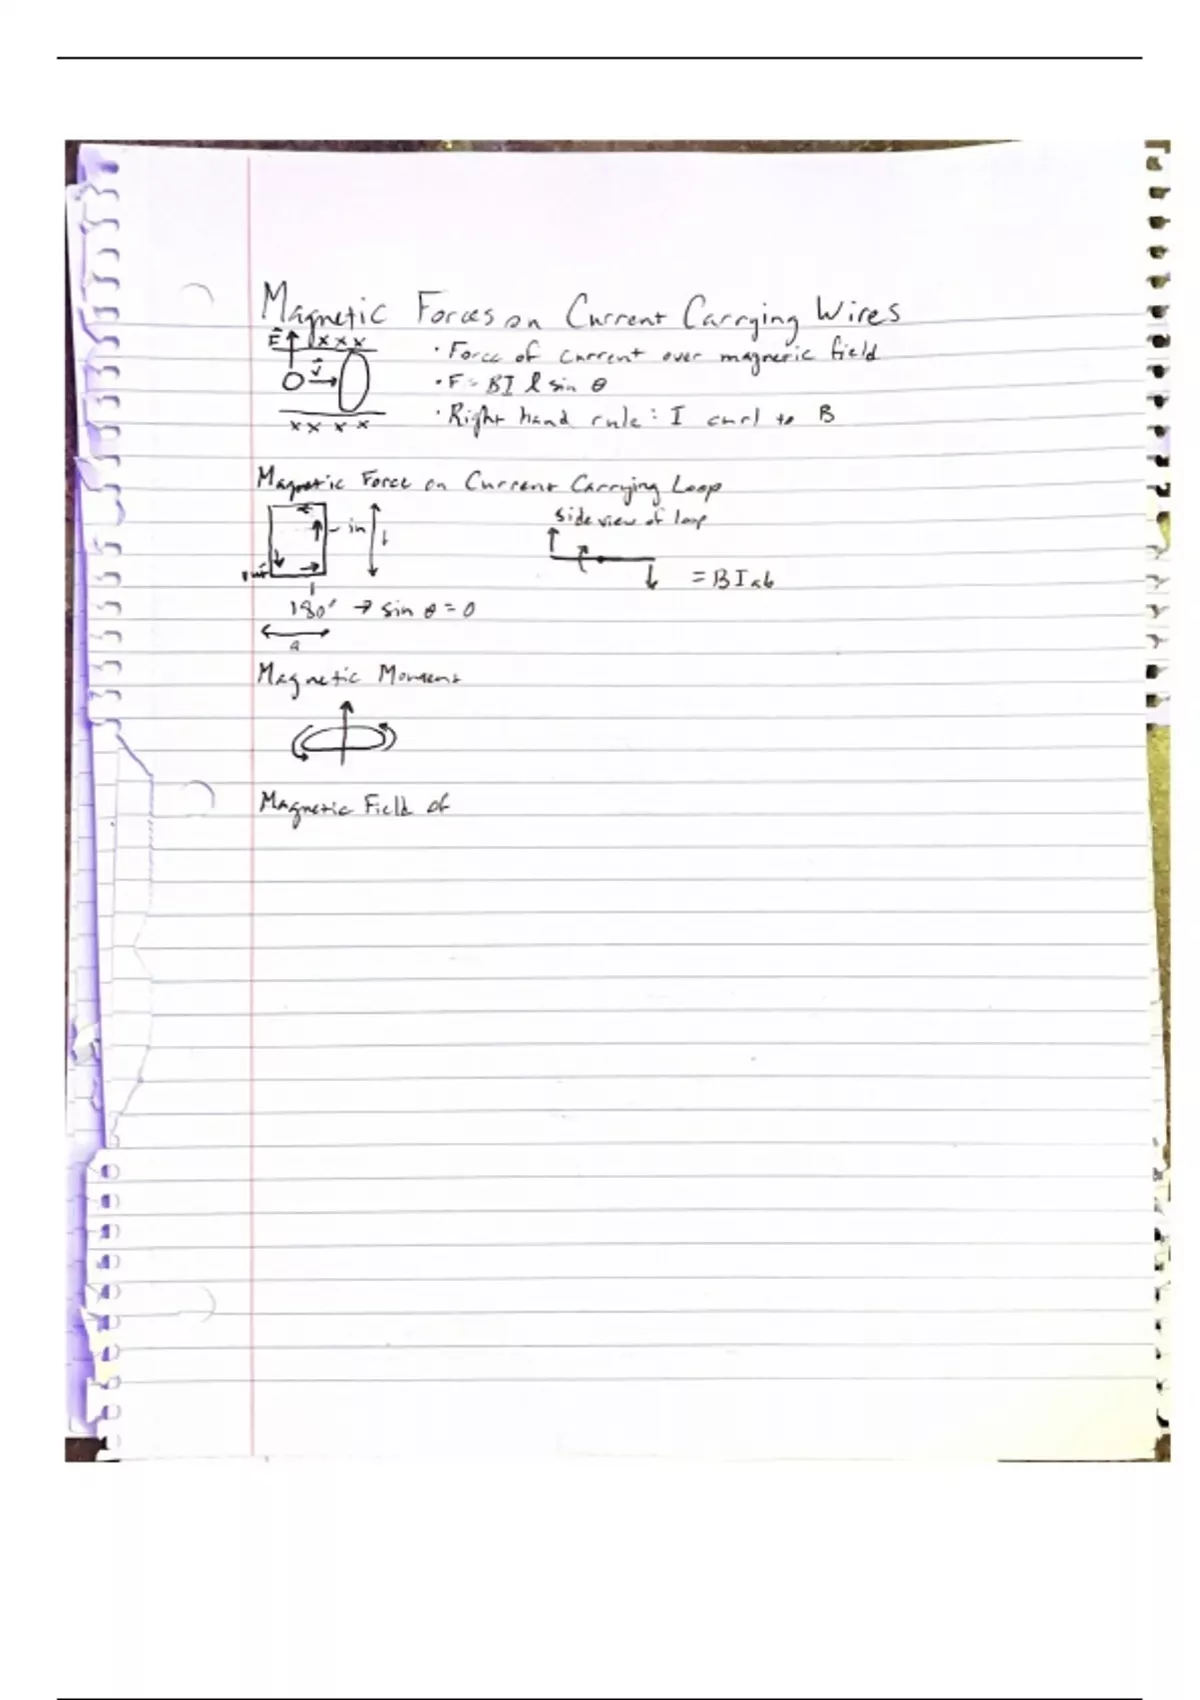 Magnetic Forces on Current Carrying Wires
x x x
· Force of current over magnetic field
v
· F = BI l sin θ
· Right hand rule: I curl to B
x x x x
Magnetic Force on Current Carrying Loop
side view of loop
- in
= BIab
180° → sin θ = 0
a
Magnetic Moment
Magnetic Field of